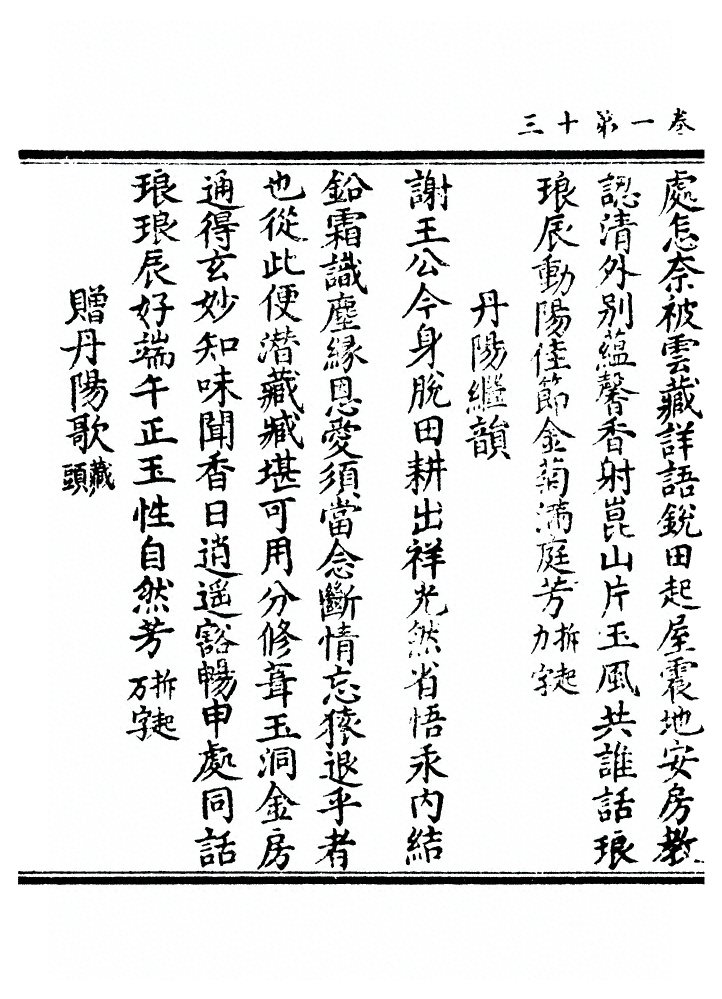 卷一第十三
處怎奈被雲藏詳語銳田起屋震地安房教
認清外别蘊馨香射崑山片玉風共誰話琅
琅辰動陽佳節金菊滿庭芳拆起力字
丹陽繼韻
謝王公今身脫田耕出祥光然省悟汞内結
鉛霜識塵緣恩愛須當念斷情忘猿退乎者
也從此便潛藏臧堪可用分修葺玉洞金房
通得玄妙知味聞香日逍遥豁暢申處同話
琅琅辰好端午正玉性自然芳拆起万字
贈丹陽歌藏頭